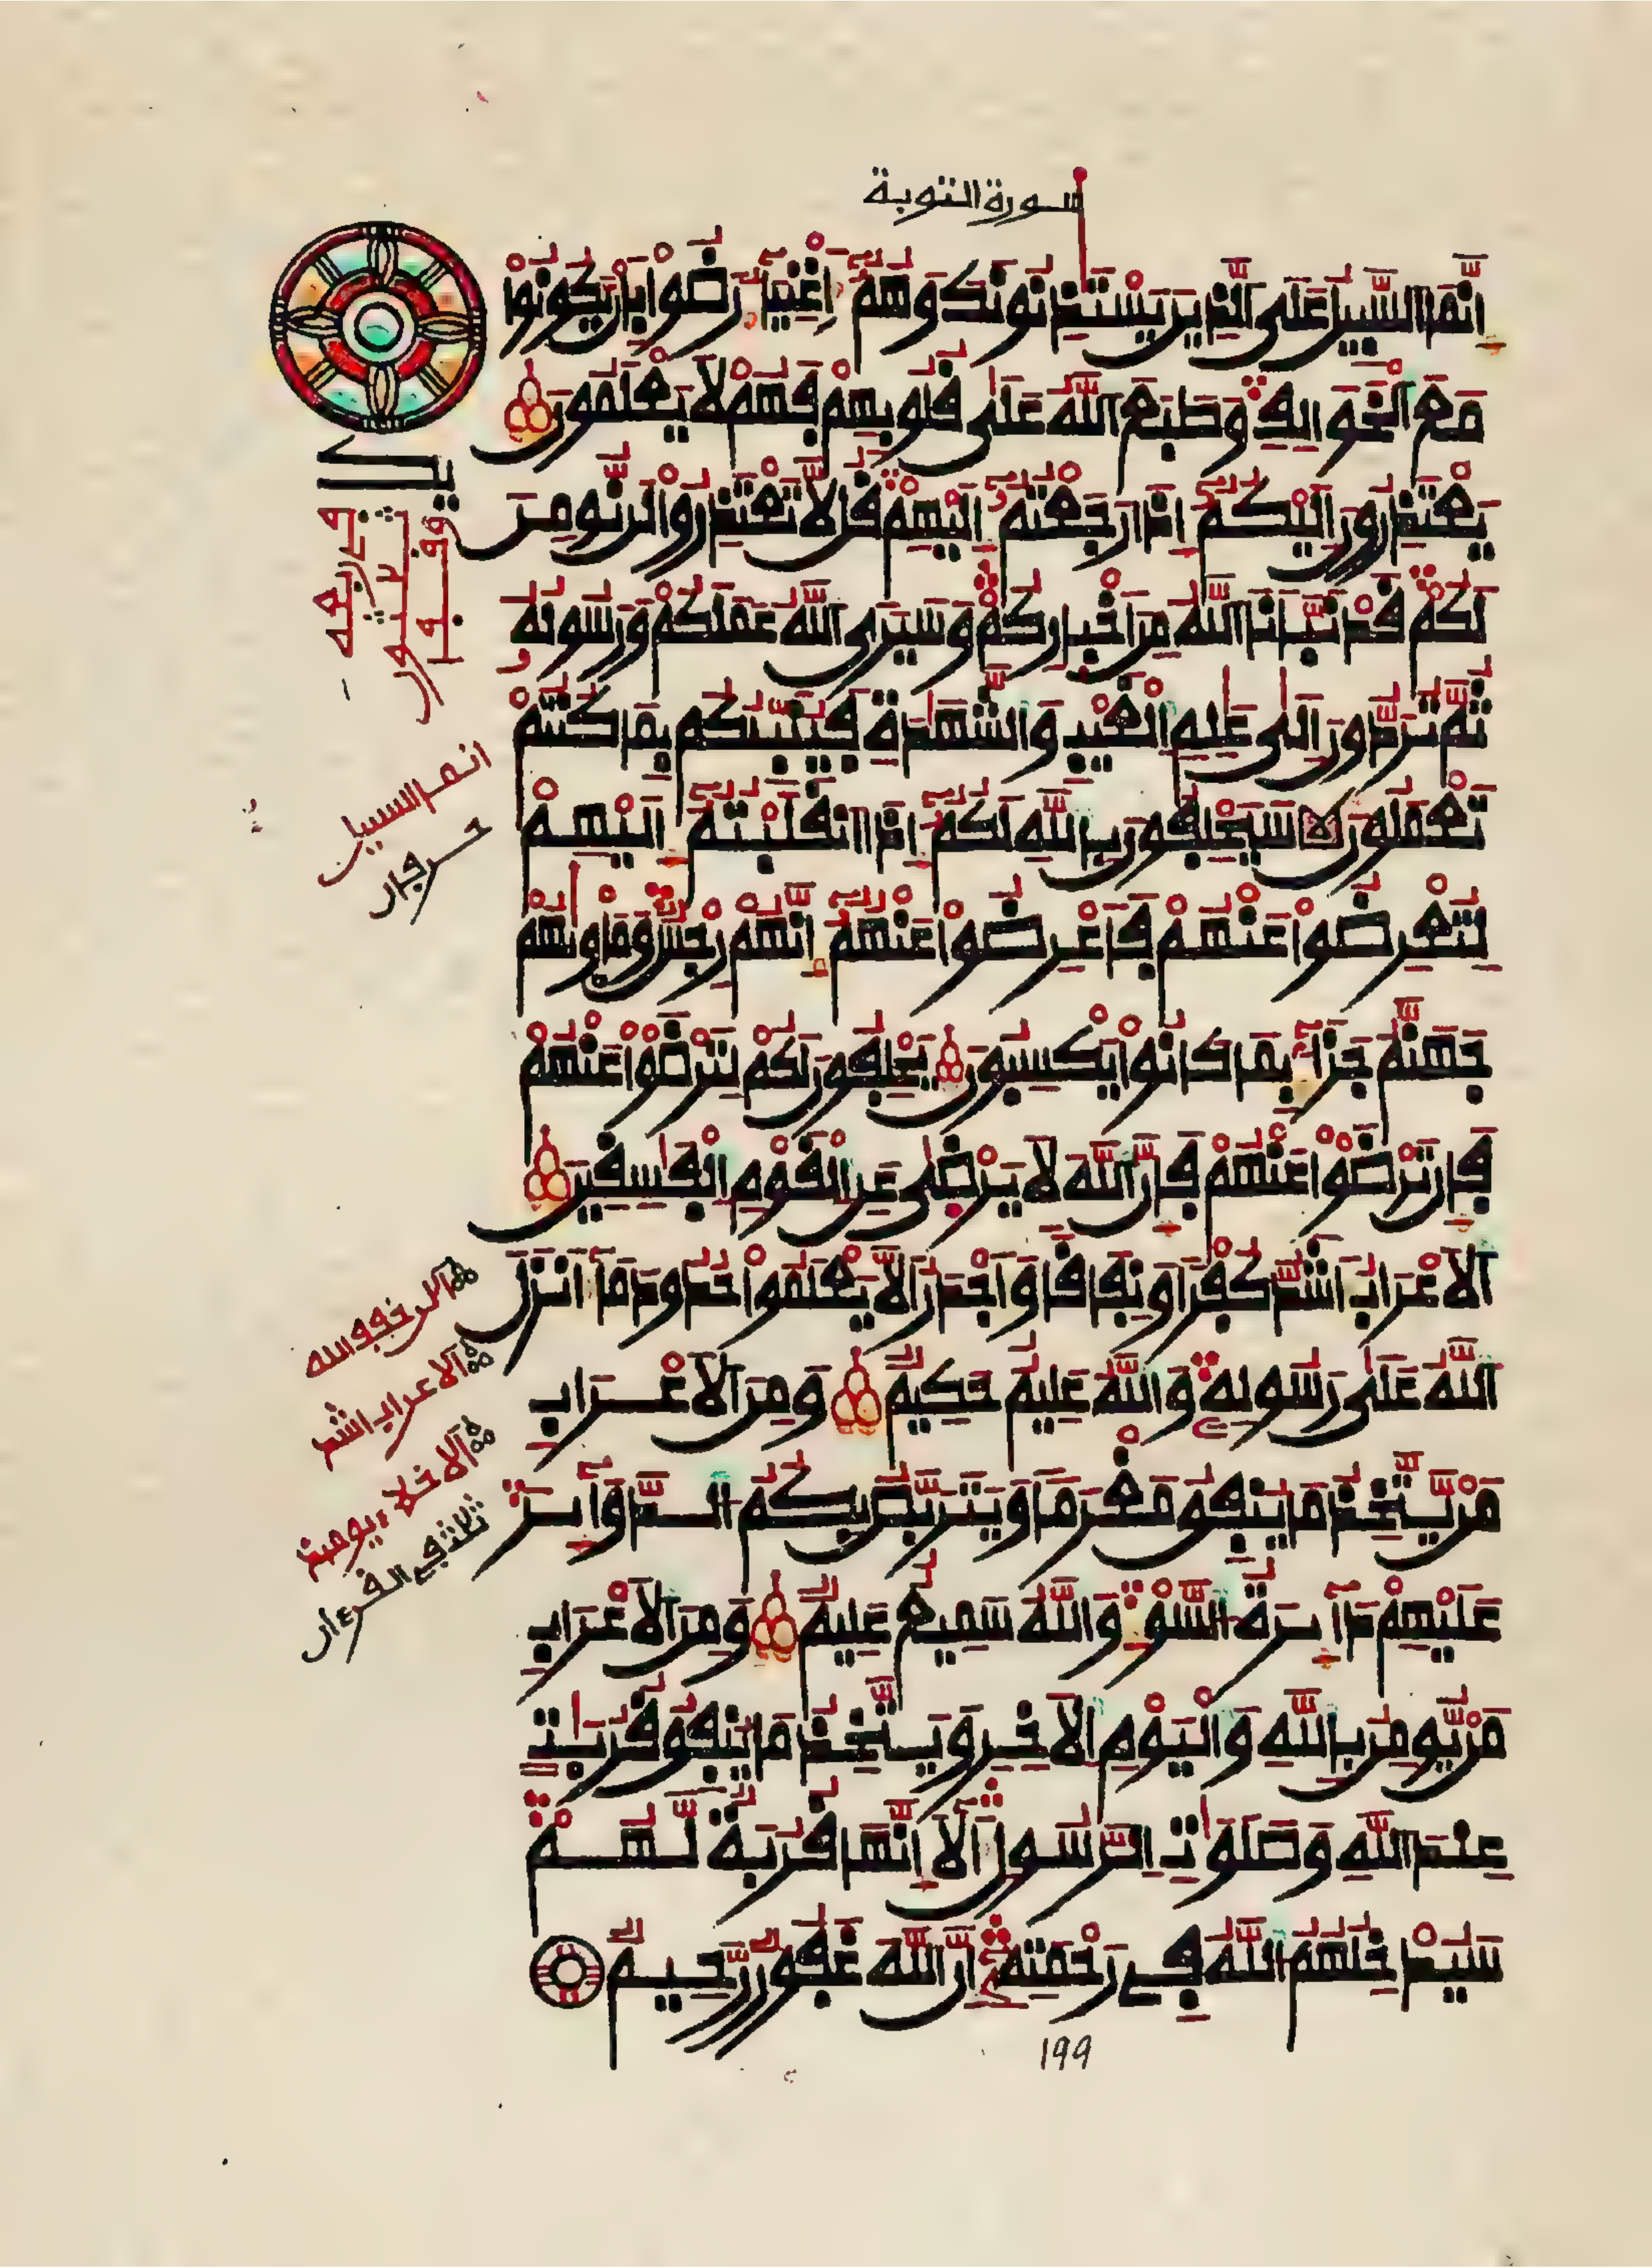 سورة التوبة
إِنَّمَا السَّبِيلُ عَلَى الذِينَ يَسْتَـٰٔذِنُونَكَ وَهُمُۥٓ أَغْنِيَآءُ رَضُوا۟ بِأَنْ يَكُونُوا۟
مَعَ الْخَوَالِفِ وَطَبَعَ اللَّهُ عَلَىٰ قُلُوبِهِمْ فَهُمْ لَا يَعْلَمُونَ
يَعْتَذِرُونَ إِلَيْكُمُۥٓ إِذَا رَجَعْتُمُۥٓ إِلَيْهِمْ قُل لَّا تَعْتَذِرُوا۟ لَن نُّومِنَ
لَكُمْ قَدْ نَبَّأَنَا اللَّهُ مِنْ أَخْبَارِكُمْ وَسَيَرَى اللَّهُ عَمَلَكُمْ وَرَسُولُهُۥ
ثُمَّ تُرَدُّونَ إِلَىٰ عَٰلِمِ الْغَيْبِ وَالشَّهَٰدَةِ فَيُنَبِّئُكُم بِمَا كُنتُمْ
تَعْمَلُونَ سَيَحْلِفُونَ بِاللَّهِ لَكُمُۥٓ إِذَا انقَلَبْتُمُۥٓ إِلَيْهِمْ
لِتُعْرِضُوا۟ عَنْهُمْ فَأَعْرِضُوا۟ عَنْهُمُۥٓ إِنَّهُمْ رِجْسٌ وَمَأْوَىٰهُمْ
جَهَنَّمُ جَزَآءً بِمَا كَانُوا۟ يَكْسِبُونَ يَحْلِفُونَ لَكُمْ لِتَرْضَوْا۟ عَنْهُمْ
فَإِن تَرْضَوْا۟ عَنْهُمْ فَإِنَّ اللَّهَ لَا يَرْضَىٰ عَنِ الْقَوْمِ الْفَٰسِقِينَ
الْأَعْرَابُ أَشَدُّ كُفْرًا وَنِفَاقًا وَأَجْدَرُ أَلَّا يَعْلَمُوا۟ حُدُودَ مَآ أَنزَلَ
اللَّهُ عَلَىٰ رَسُولِهِۦ وَاللَّهُ عَلِيمٌ حَكِيمٌ وَمِنَ الْأَعْرَابِ
مَنْ يَّتَّخِذُ مَا يُنفِقُ مَغْرَمًا وَيَتَرَبَّصُ بِكُمُ الدَّوَآئِرَ
عَلَيْهِمْ دَآئِرَةُ السَّوْءِ وَاللَّهُ سَمِيعٌ عَلِيمٌ وَمِنَ الْأَعْرَابِ
مَنْ يُّومِنُ بِاللَّهِ وَالْيَوْمِ الْأَخِرِ وَيَتَّخِذُ مَا يُنفِقُ قُرُبَٰتٍ
عِندَ اللَّهِ وَصَلَوَٰتِ الرَّسُولِ أَلَآ إِنَّهَا قُرْبَةٌ لَّهُمْ
سَيُدْخِلُهُمُ اللَّهُ فِے رَحْمَتِهِۦٓ إِنَّ اللَّهَ غَفُورٌ رَّحِيمٌ
انما السبيل
الاعراب اشد
199